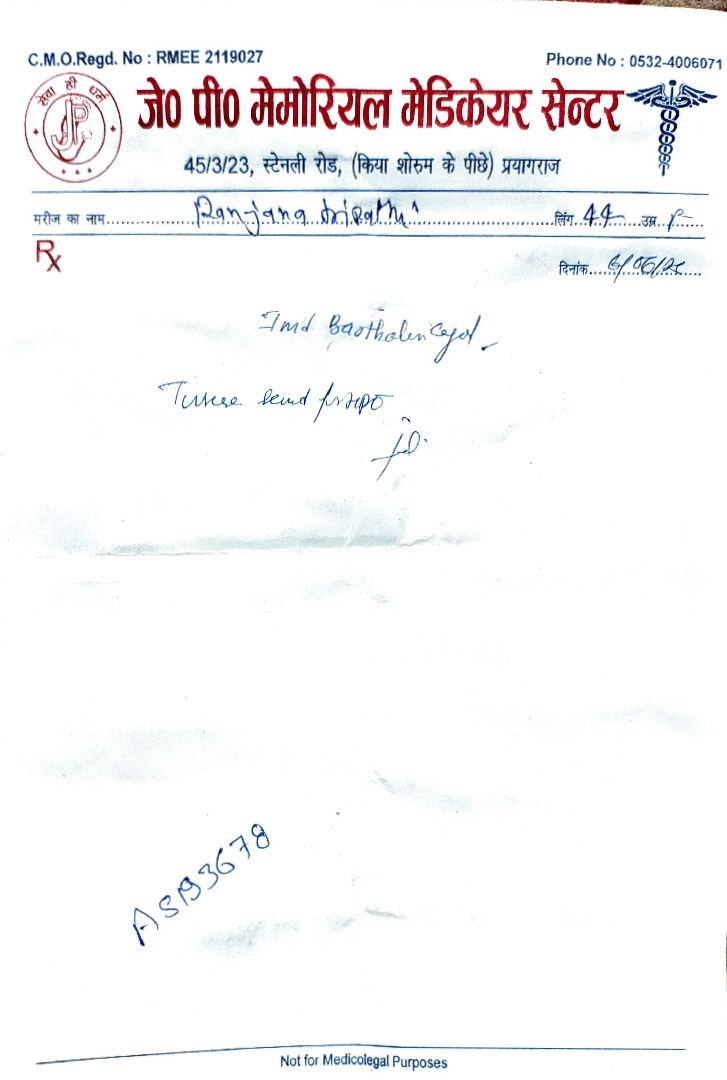 C.M.O.Regd. No : RMEE 2119027
Phone No : 0532-4006071
सेवा ही धर्म
JP
जे0 पी0 मेमोरियल मेडिकेयर सेन्टर
45/3/23, स्टेनली रोड, (किया शोरुम के पीछे) प्रयागराज
मरीज का नाम.......Ranjana.......लिंग..44..उम्र..
Rx
दिनांक....../06/
send for HPE
AS193678
Not for Medicolegal Purposes